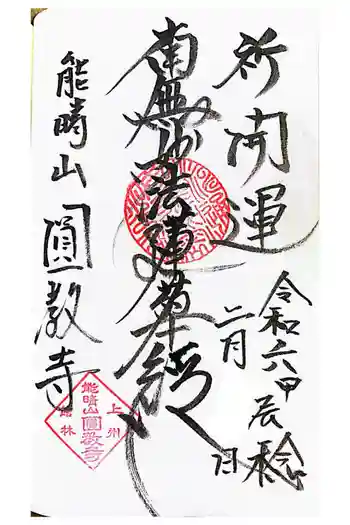 祈開運
令和六甲辰稔
二月 日
南無妙法蓮華経
能晴山圓教寺
上州
能晴山
圓教寺
館林